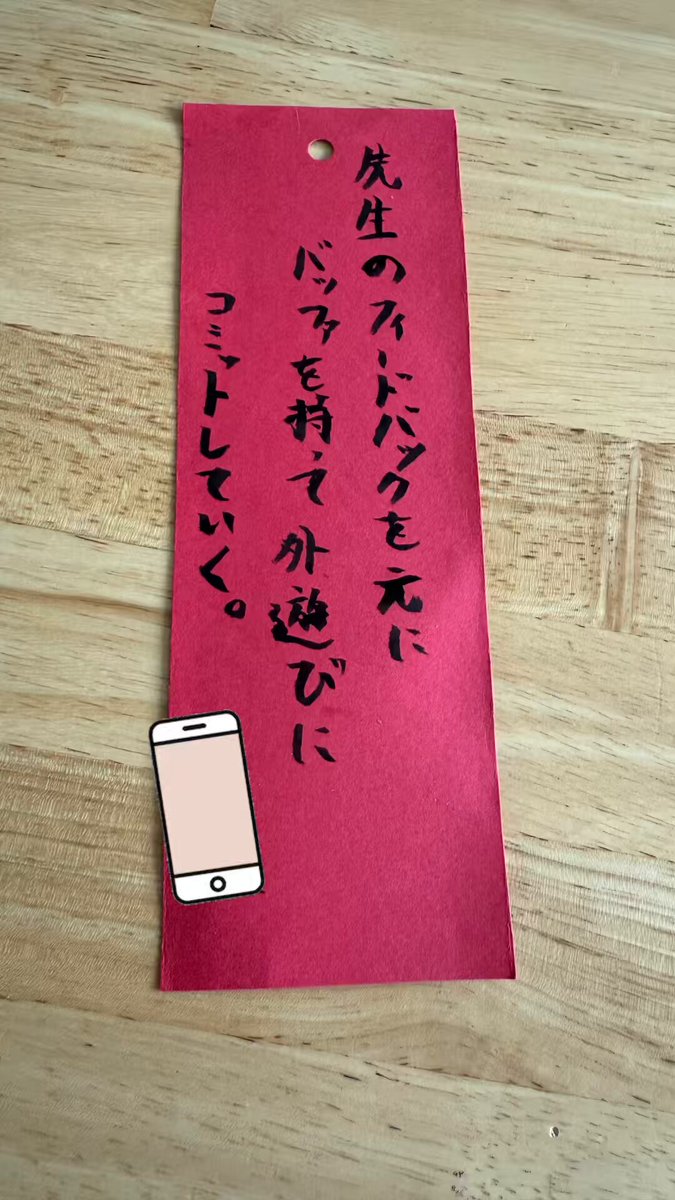 先生のフィードバックを元に
バッファを持って外遊びに
コミットしていく。